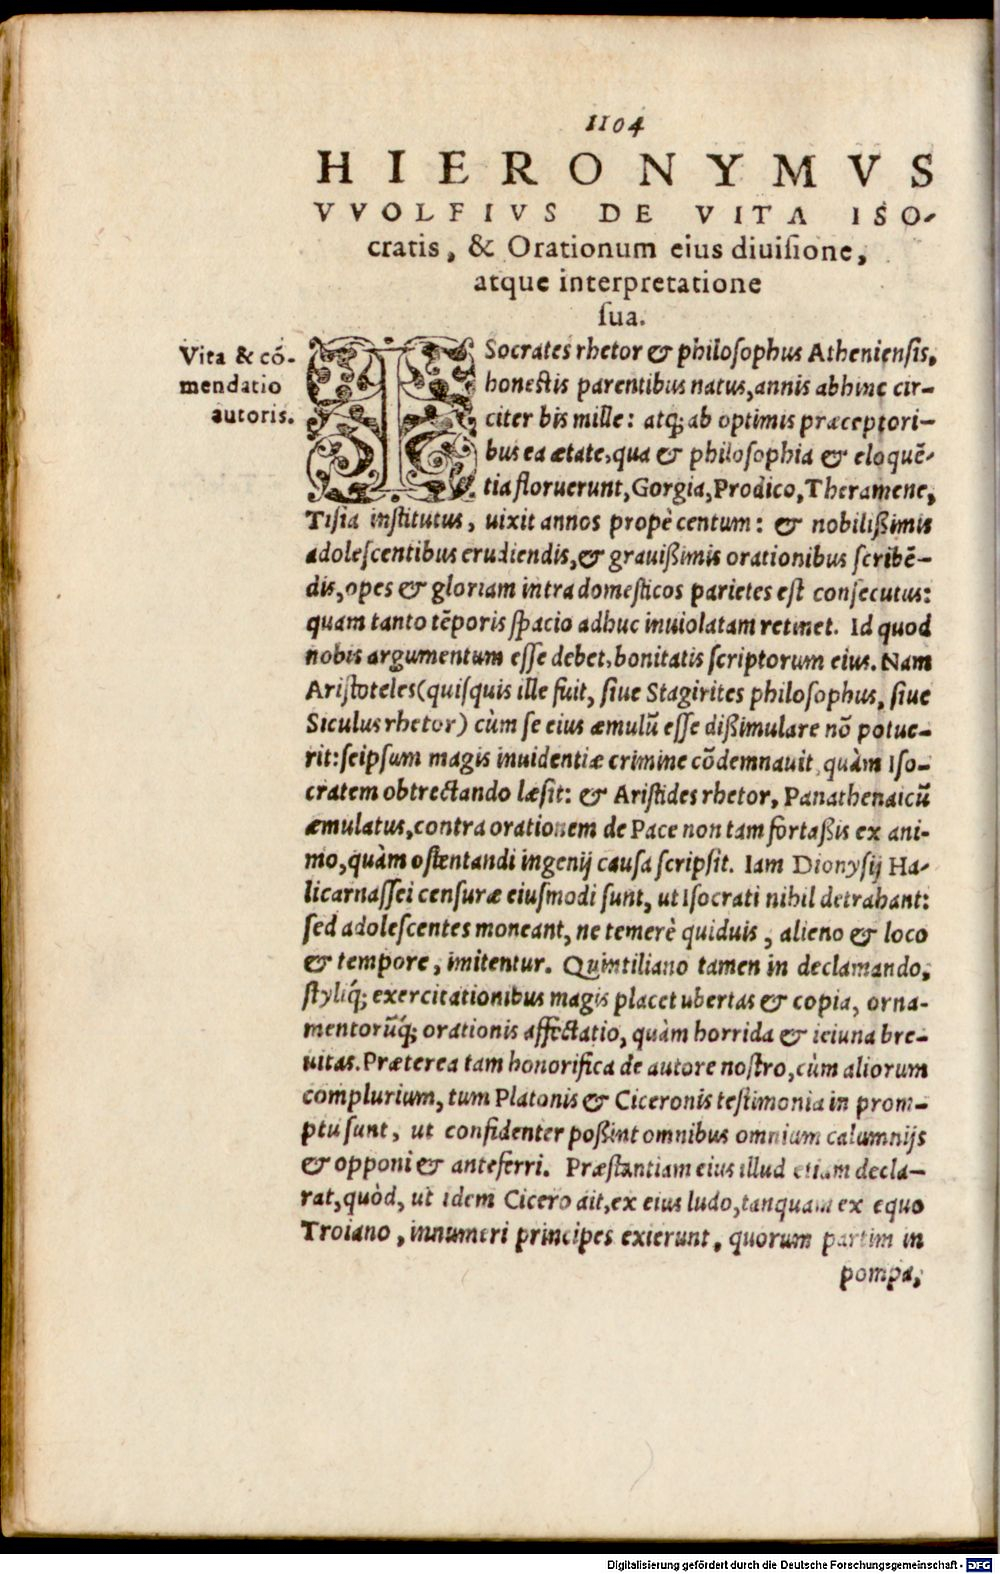 1104
HIERONYMVS
VVOLFIVS DE VITA ISO-
cratis, & Orationum eius diuiſione,
atque interpretatione
ſua.
Vita & cō-
mendatio
autoris.
ISocrates rhetor & philoſophus Athenienſis,
honeſtis parentibus natus, annis abhinc cir-
citer bis mille: atq; ab optimis præceptori-
bus ea ætate, qua & philoſophia & eloquē-
tia floruerunt, Gorgia, Prodico, Theramene,
Tiſia inſtitutus, uixit annos propè centum: & nobilißimis
adoleſcentibus erudiendis, & grauißimis orationibus ſcribē-
dis, opes & gloriam intra domeſticos parietes eſt conſecutus:
quam tanto tēporis ſpacio adhuc inuiolatam retinet. Id quod
nobis argumentum eſſe debet, bonitatis ſcriptorum eius. Nam
Ariſtoteles (quiſquis ille fuit, ſiue Stagirites philoſophus, ſiue
Siculus rhetor) cùm ſe eius æmulū eſſe dißimulare nō potue-
rit: ſeipſum magis inuidentiæ crimine cōdemnauit, quàm Iſo-
cratem obtrectando læſit: & Ariſtides rhetor, Panathenaicū
æmulatus, contra orationem de Pace non tam fortaßis ex ani-
mo, quàm oſtentandi ingenij cauſa ſcripſit. Iam Dionyſij Ha-
licarnaſſei cenſuræ eiuſmodi ſunt, ut Iſocrati nihil detrahant:
ſed adoleſcentes moneant, ne temerè quiduis, alieno & loco
& tempore, imitentur. Quintiliano tamen in declamando,
ſtyliq́; exercitationibus magis placet ubertas & copia, orna-
mentorūq́; orationis affectatio, quàm horrida & ieiuna bre-
uitas. Præterea tam honorifica de autore noſtro, cùm aliorum
complurium, tum Platonis & Ciceronis teſtimonia in prom-
ptu ſunt, ut confidenter poßint omnibus omnium calumnijs
& opponi & anteferri. Præſtantiam eius illud etiam decla-
rat, quòd, ut idem Cicero ait, ex eius ludo, tanquam ex equo
Troiano, innumeri principes exierunt, quorum partim in
pompa,
Digitalisierung gefördert durch die Deutsche Forschungsgemeinschaft - DFG